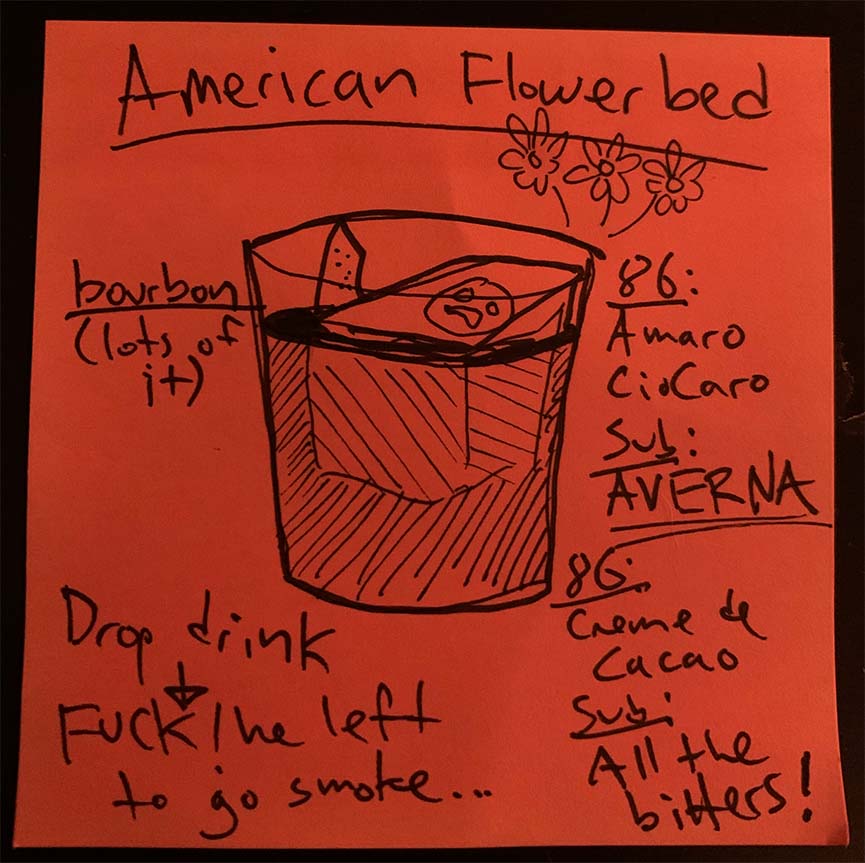 American Flowerbed
bourbon
(lots of
it)
86:
Amaro
CioCaro
Sub:
AVERNA
86:
Creme de
Cacao
Sub:
All the
bitters!
Drop drink
FUCK! he left
to go smoke...